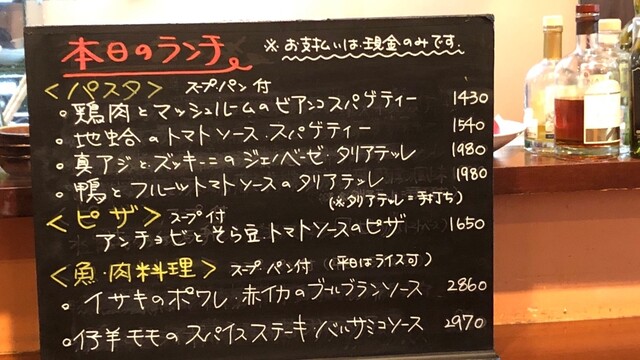 本日のランチ
※お支払いは現金のみです。
<パスタ> スープ・パン付
。鶏肉とマッシュルームのビアンコスパゲティー 1430
。地蛤のトマトソース・スパゲティー 1540
。真アジとズッキーニのジェノベーゼ・タリアテッレ 1980
。鴨とフルーツトマトソースのタリアテッレ 1980
(※タリアテッレ=手打ち)
<ピザ> スープ付
アンチョビとそら豆・トマトソースのピザ 1650
<魚・肉料理> スープ・パン付 (平日はライス可)
。イサキのポワレ・赤イカのブールブランソース 2860
。仔羊モモのスパイスステーキ・バルサミコソース 2970